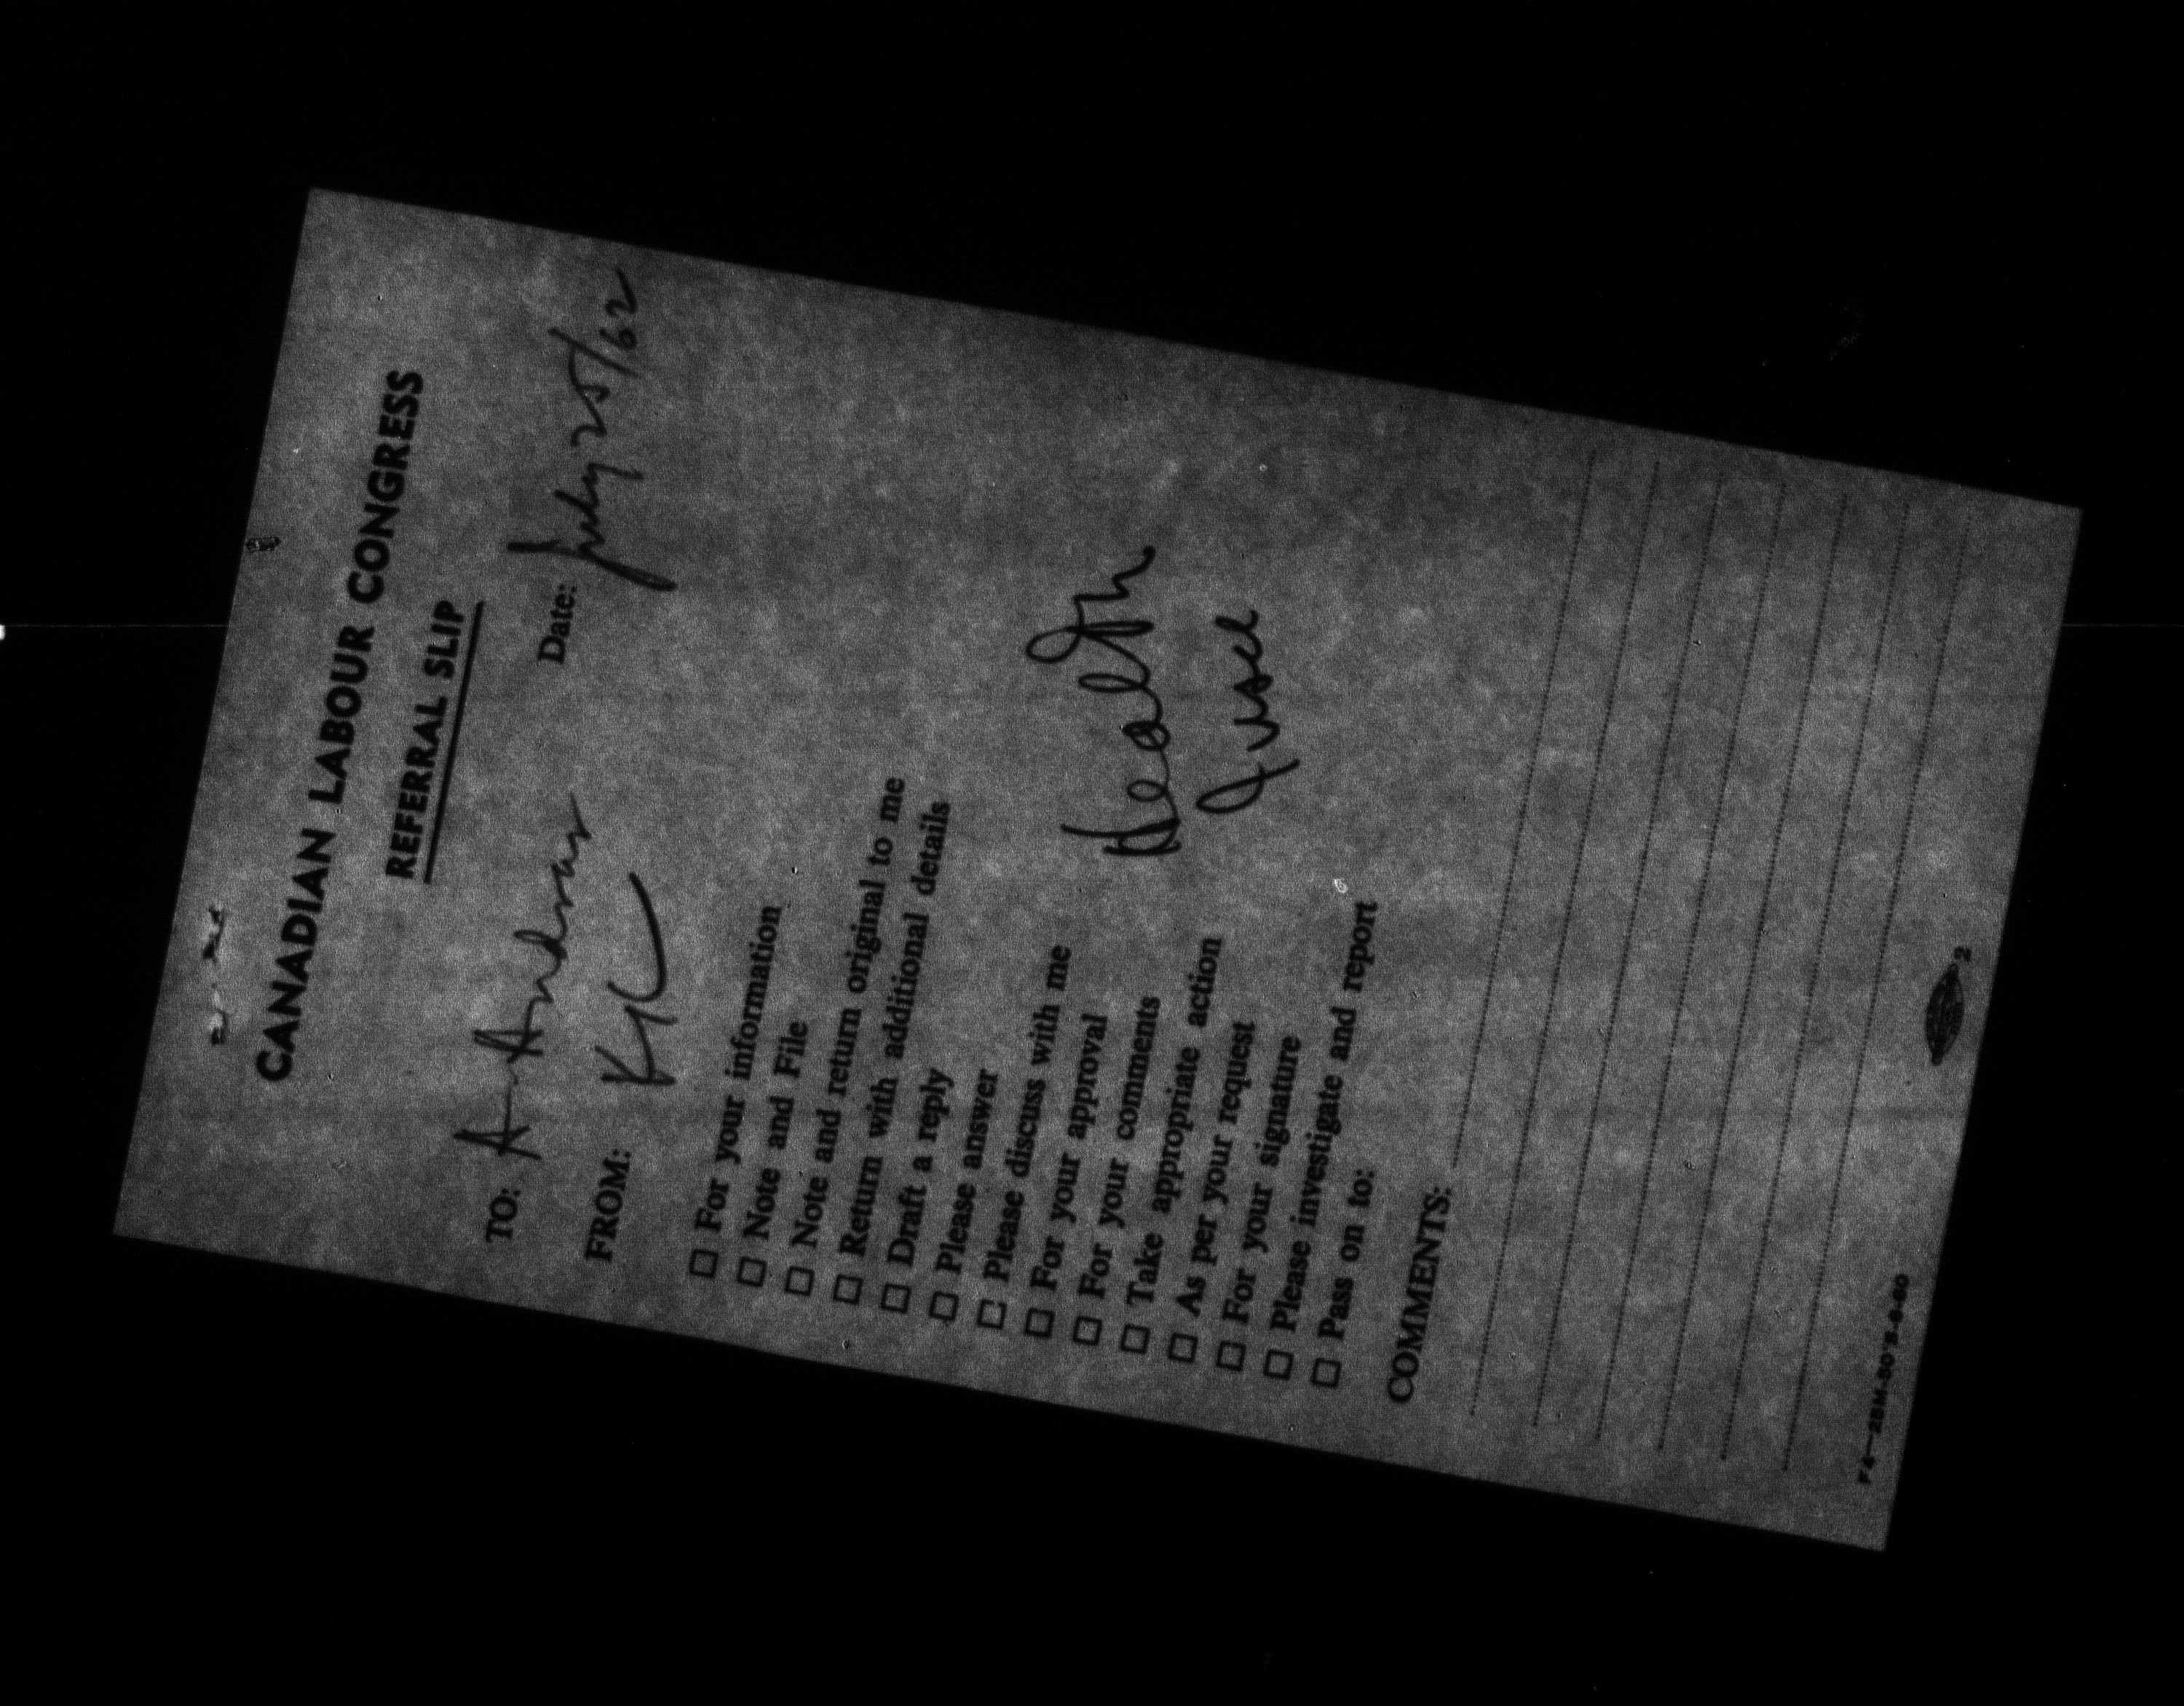 CANADIAN LABOUR CONGRESS
REFERRAL SLIP
Date: July 25/62
TO: A. Andras
FROM:
☐ For your information
☐ Note and File
☐ Note and return original to me
☐ Return with additional details
☐ Draft a reply
☐ Please answer
☐ Please discuss with me
☐ For your approval
☐ For your comments
☐ Take appropriate action
☐ As per your request
☐ For your signature
☐ Please investigate and report
☐ Pass on to:
Health
COMMENTS:
2